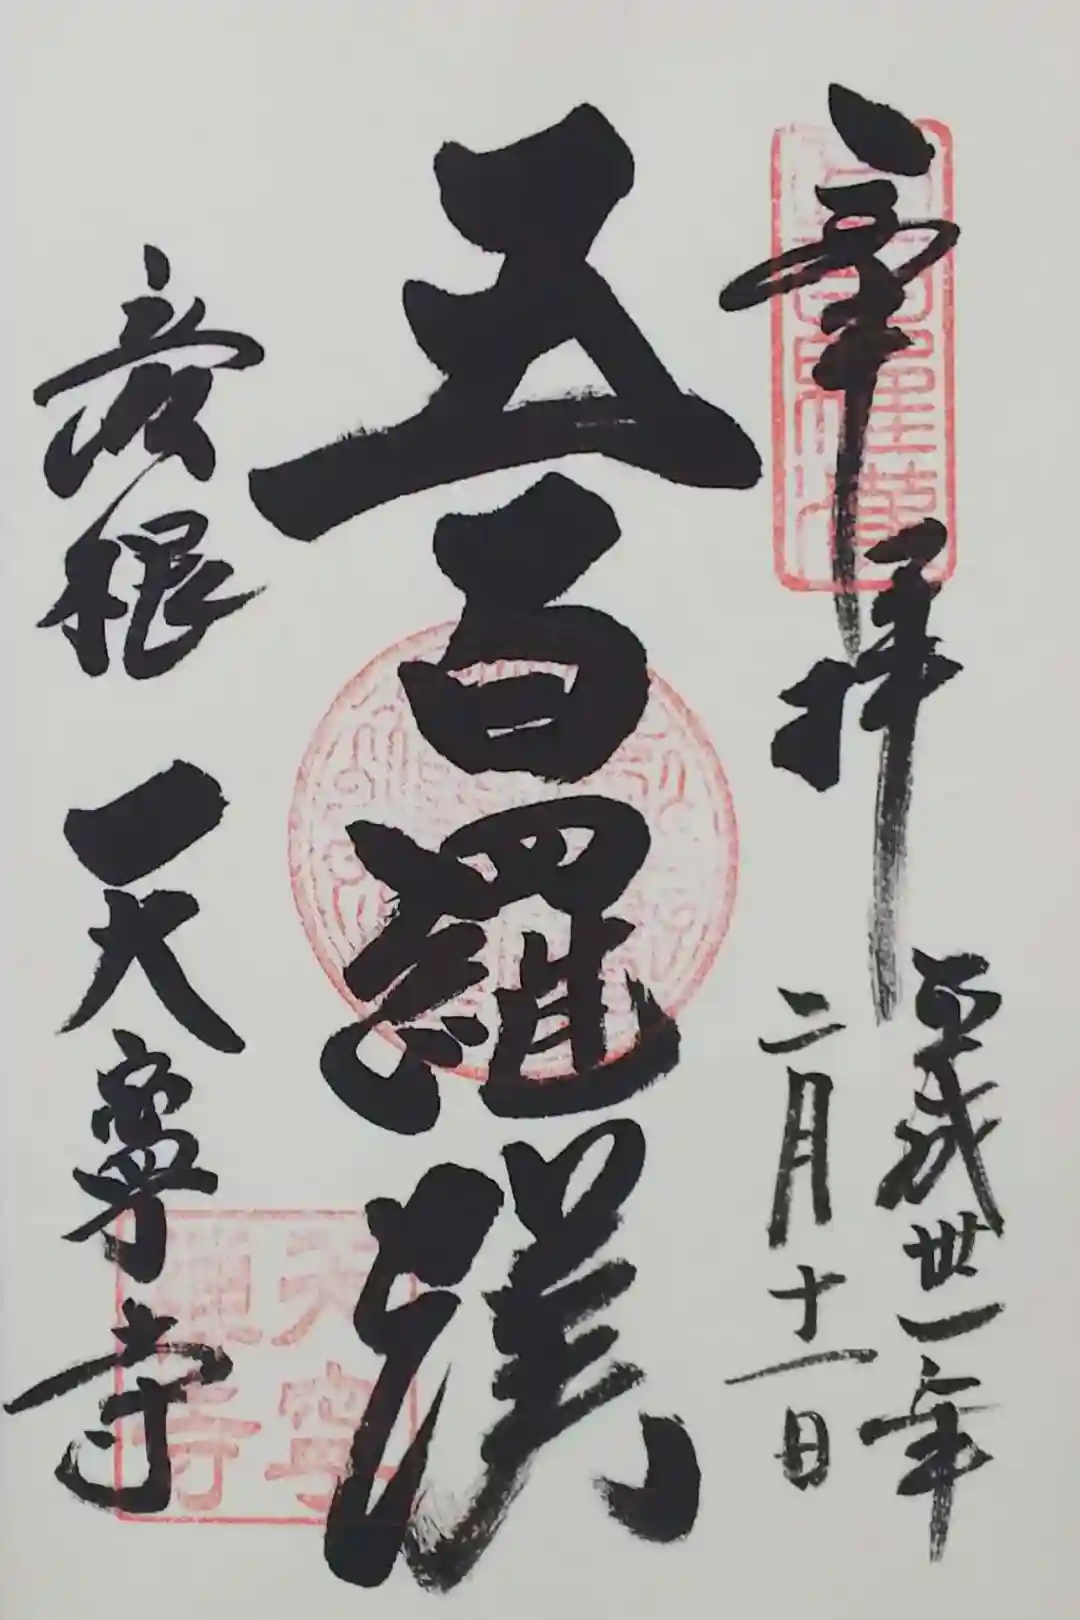 奉拝
平成卅一年
二月十一日
五百羅漢
彦根 天寧寺
天寧
禅寺